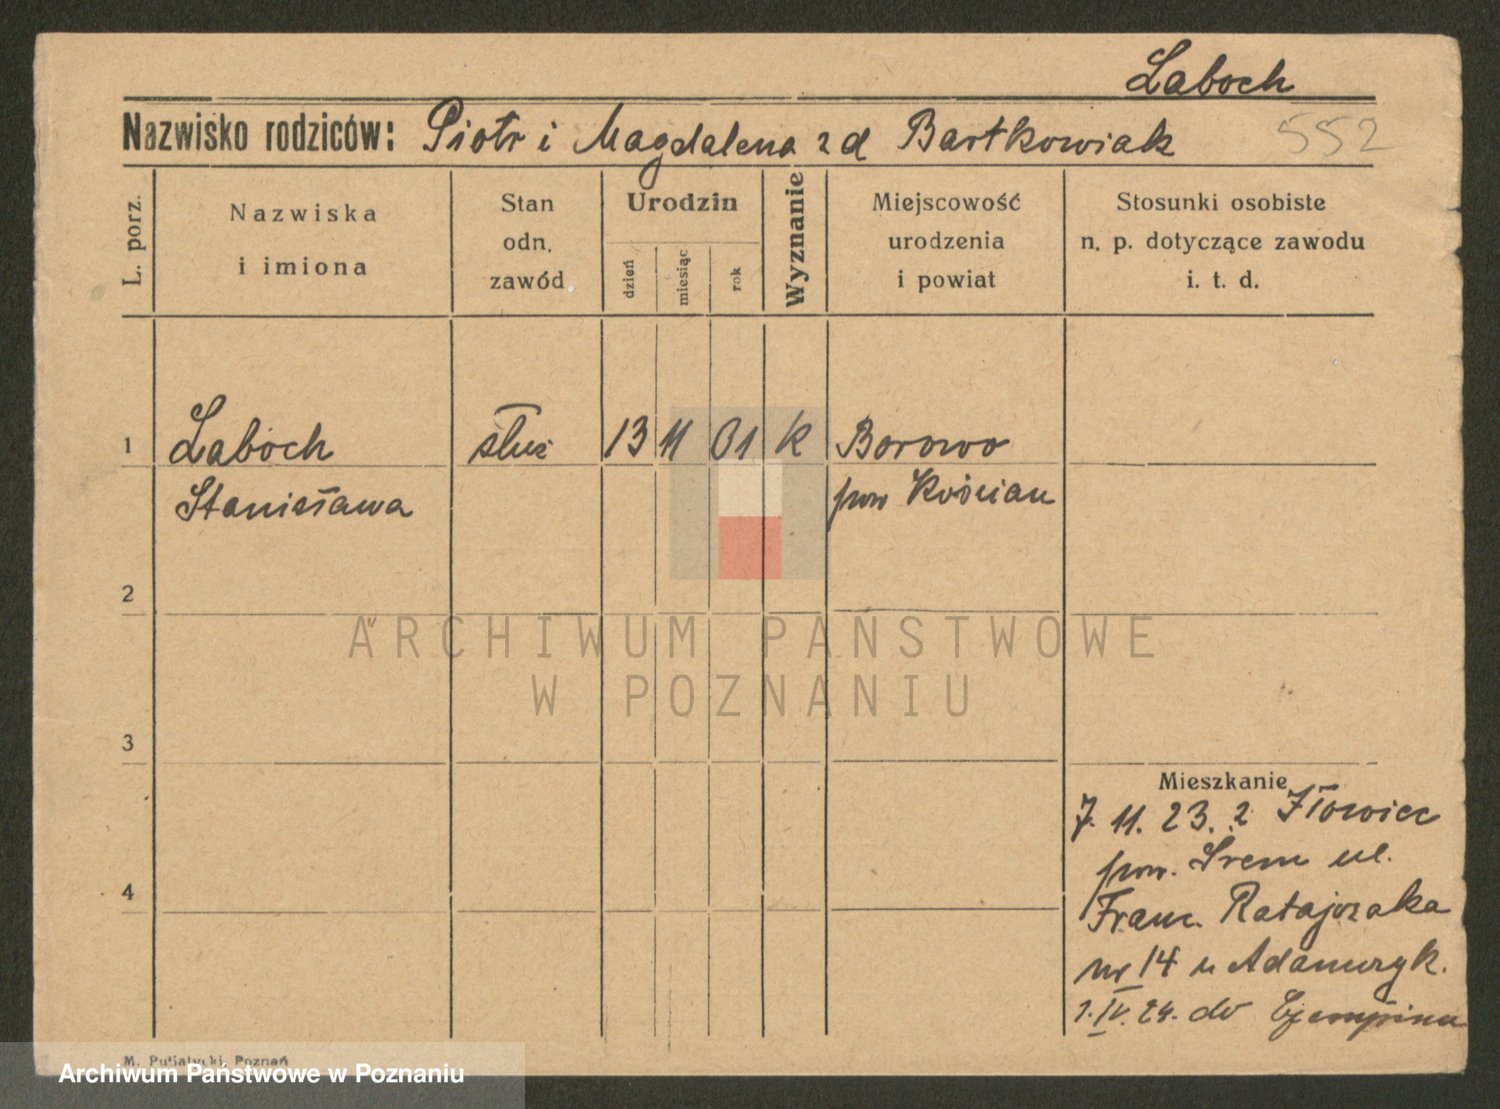 Laboch
Nazwisko rodziców: Piotr i Magdalena z d Bartkowiak 552
L. porz.
Nazwiska
i imiona
Stan
odn.
zawód
Urodzin
dzień
miesiąc
rok
Wyznanie
Miejscowość
urodzenia
i powiat
Stosunki osobiste
n. p. dotyczące zawodu
i. t. d.
1 Laboch służ 13 11 01 k Borowo
Stanisława pow Kościan
2
ARCHIWUM PAŃSTWOWE
W POZNANIU
3
Mieszkanie
7. 11. 23. z Iłowiec
pow. Śrem ul.
Franc. Ratajczaka
nr 14 u Adamczyk.
1. IV. 24. do Czempinia
4
M. Putiatycki, Poznań
Archiwum Państwowe w Poznaniu